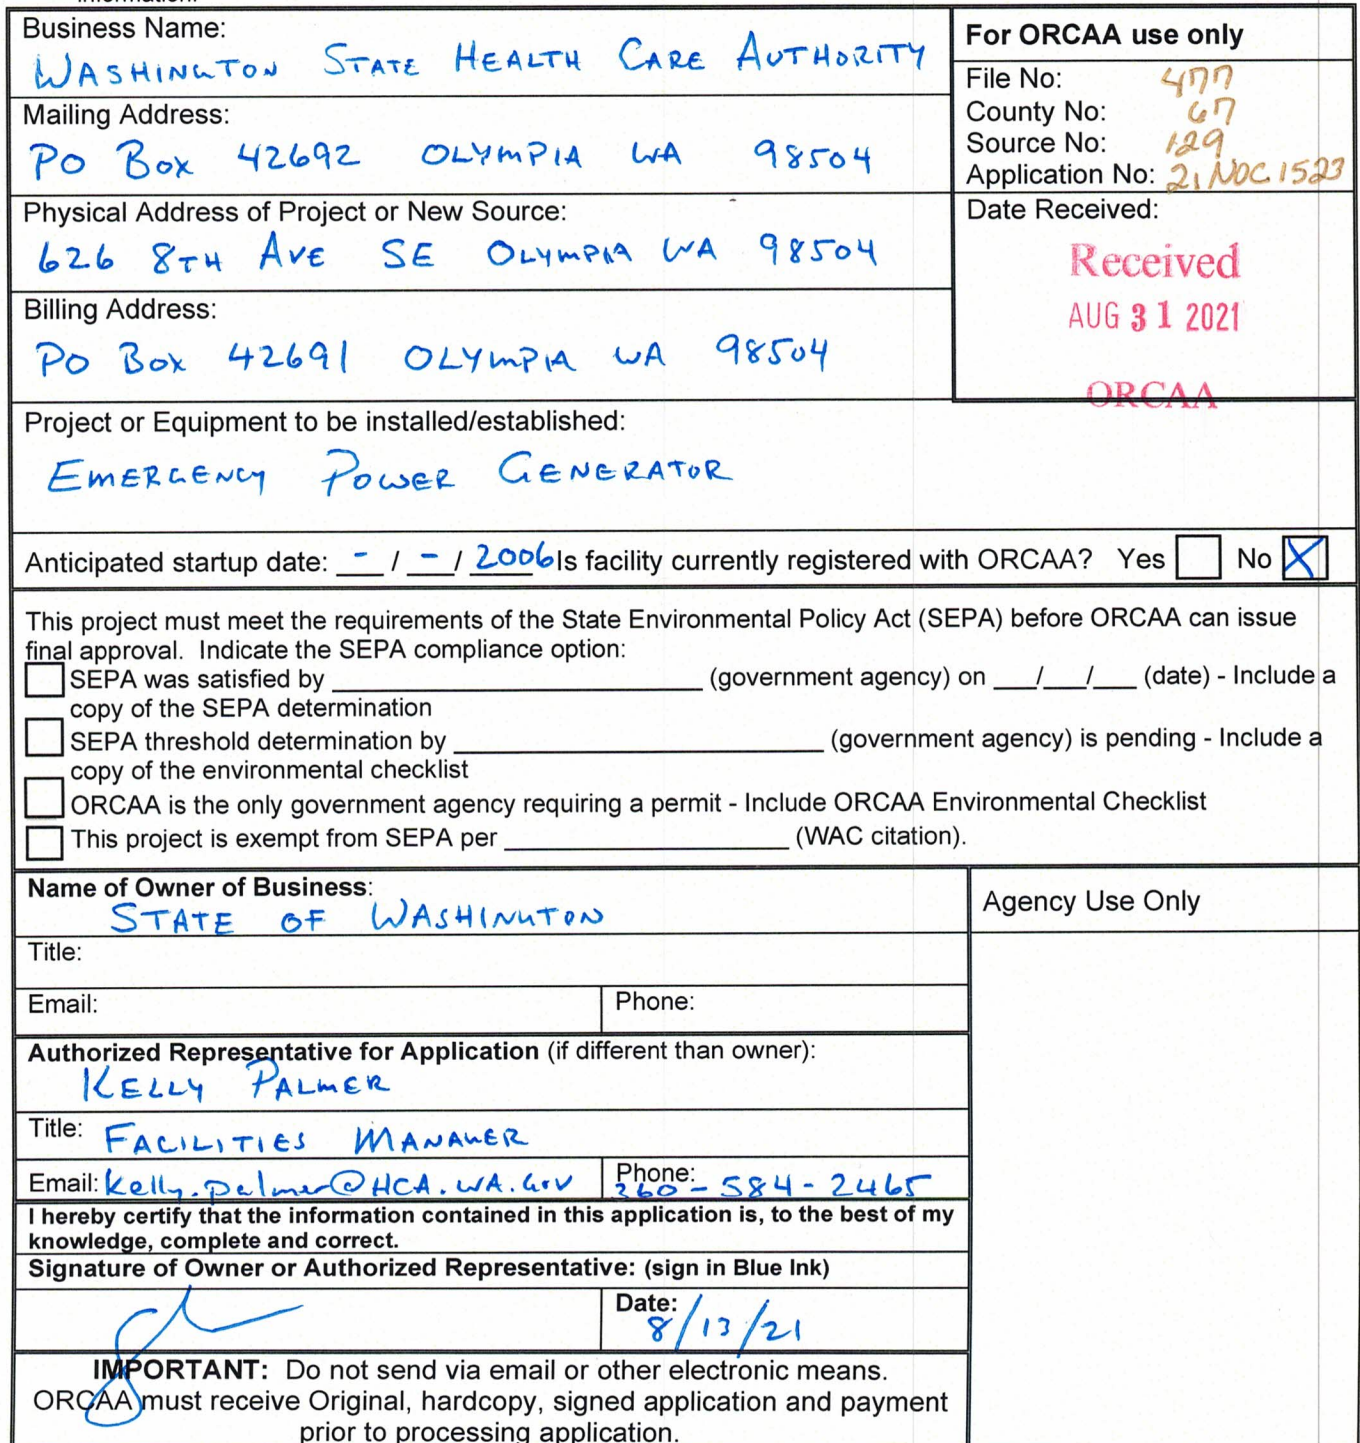 information.
Business Name:
WASHINGTON STATE HEALTH CARE AUTHORITY
Mailing Address:
PO Box 42692 OLYMPIA WA 98504
Physical Address of Project or New Source:
626 8TH AVE SE OLYMPIA WA 98504
Billing Address:
PO Box 42691 OLYMPIA WA 98504
For ORCAA use only
File No: 477
County No: 67
Source No: 129
Application No: 21NOC1523
Date Received:
Received
AUG 31 2021
ORCAA
Project or Equipment to be installed/established:
EMERGENCY POWER GENERATOR
Anticipated startup date: - / - / 2006 Is facility currently registered with ORCAA? Yes No X
This project must meet the requirements of the State Environmental Policy Act (SEPA) before ORCAA can issue
final approval. Indicate the SEPA compliance option:
SEPA was satisfied by ____ (government agency) on __/__/__ (date) - Include a
copy of the SEPA determination
SEPA threshold determination by ____ (government agency) is pending - Include a
copy of the environmental checklist
ORCAA is the only government agency requiring a permit - Include ORCAA Environmental Checklist
This project is exempt from SEPA per ____ (WAC citation).
Name of Owner of Business:
STATE OF WASHINGTON
Title:
Email: Phone:
Agency Use Only
Authorized Representative for Application (if different than owner):
KELLY PALMER
Title: FACILITIES MANAGER
Email: kelly.palmer@HCA.WA.GOV Phone: 360-584-2465
I hereby certify that the information contained in this application is, to the best of my
knowledge, complete and correct.
Signature of Owner or Authorized Representative: (sign in Blue Ink)
Date: 8/13/21
IMPORTANT: Do not send via email or other electronic means.
ORCAA must receive Original, hardcopy, signed application and payment
prior to processing application.